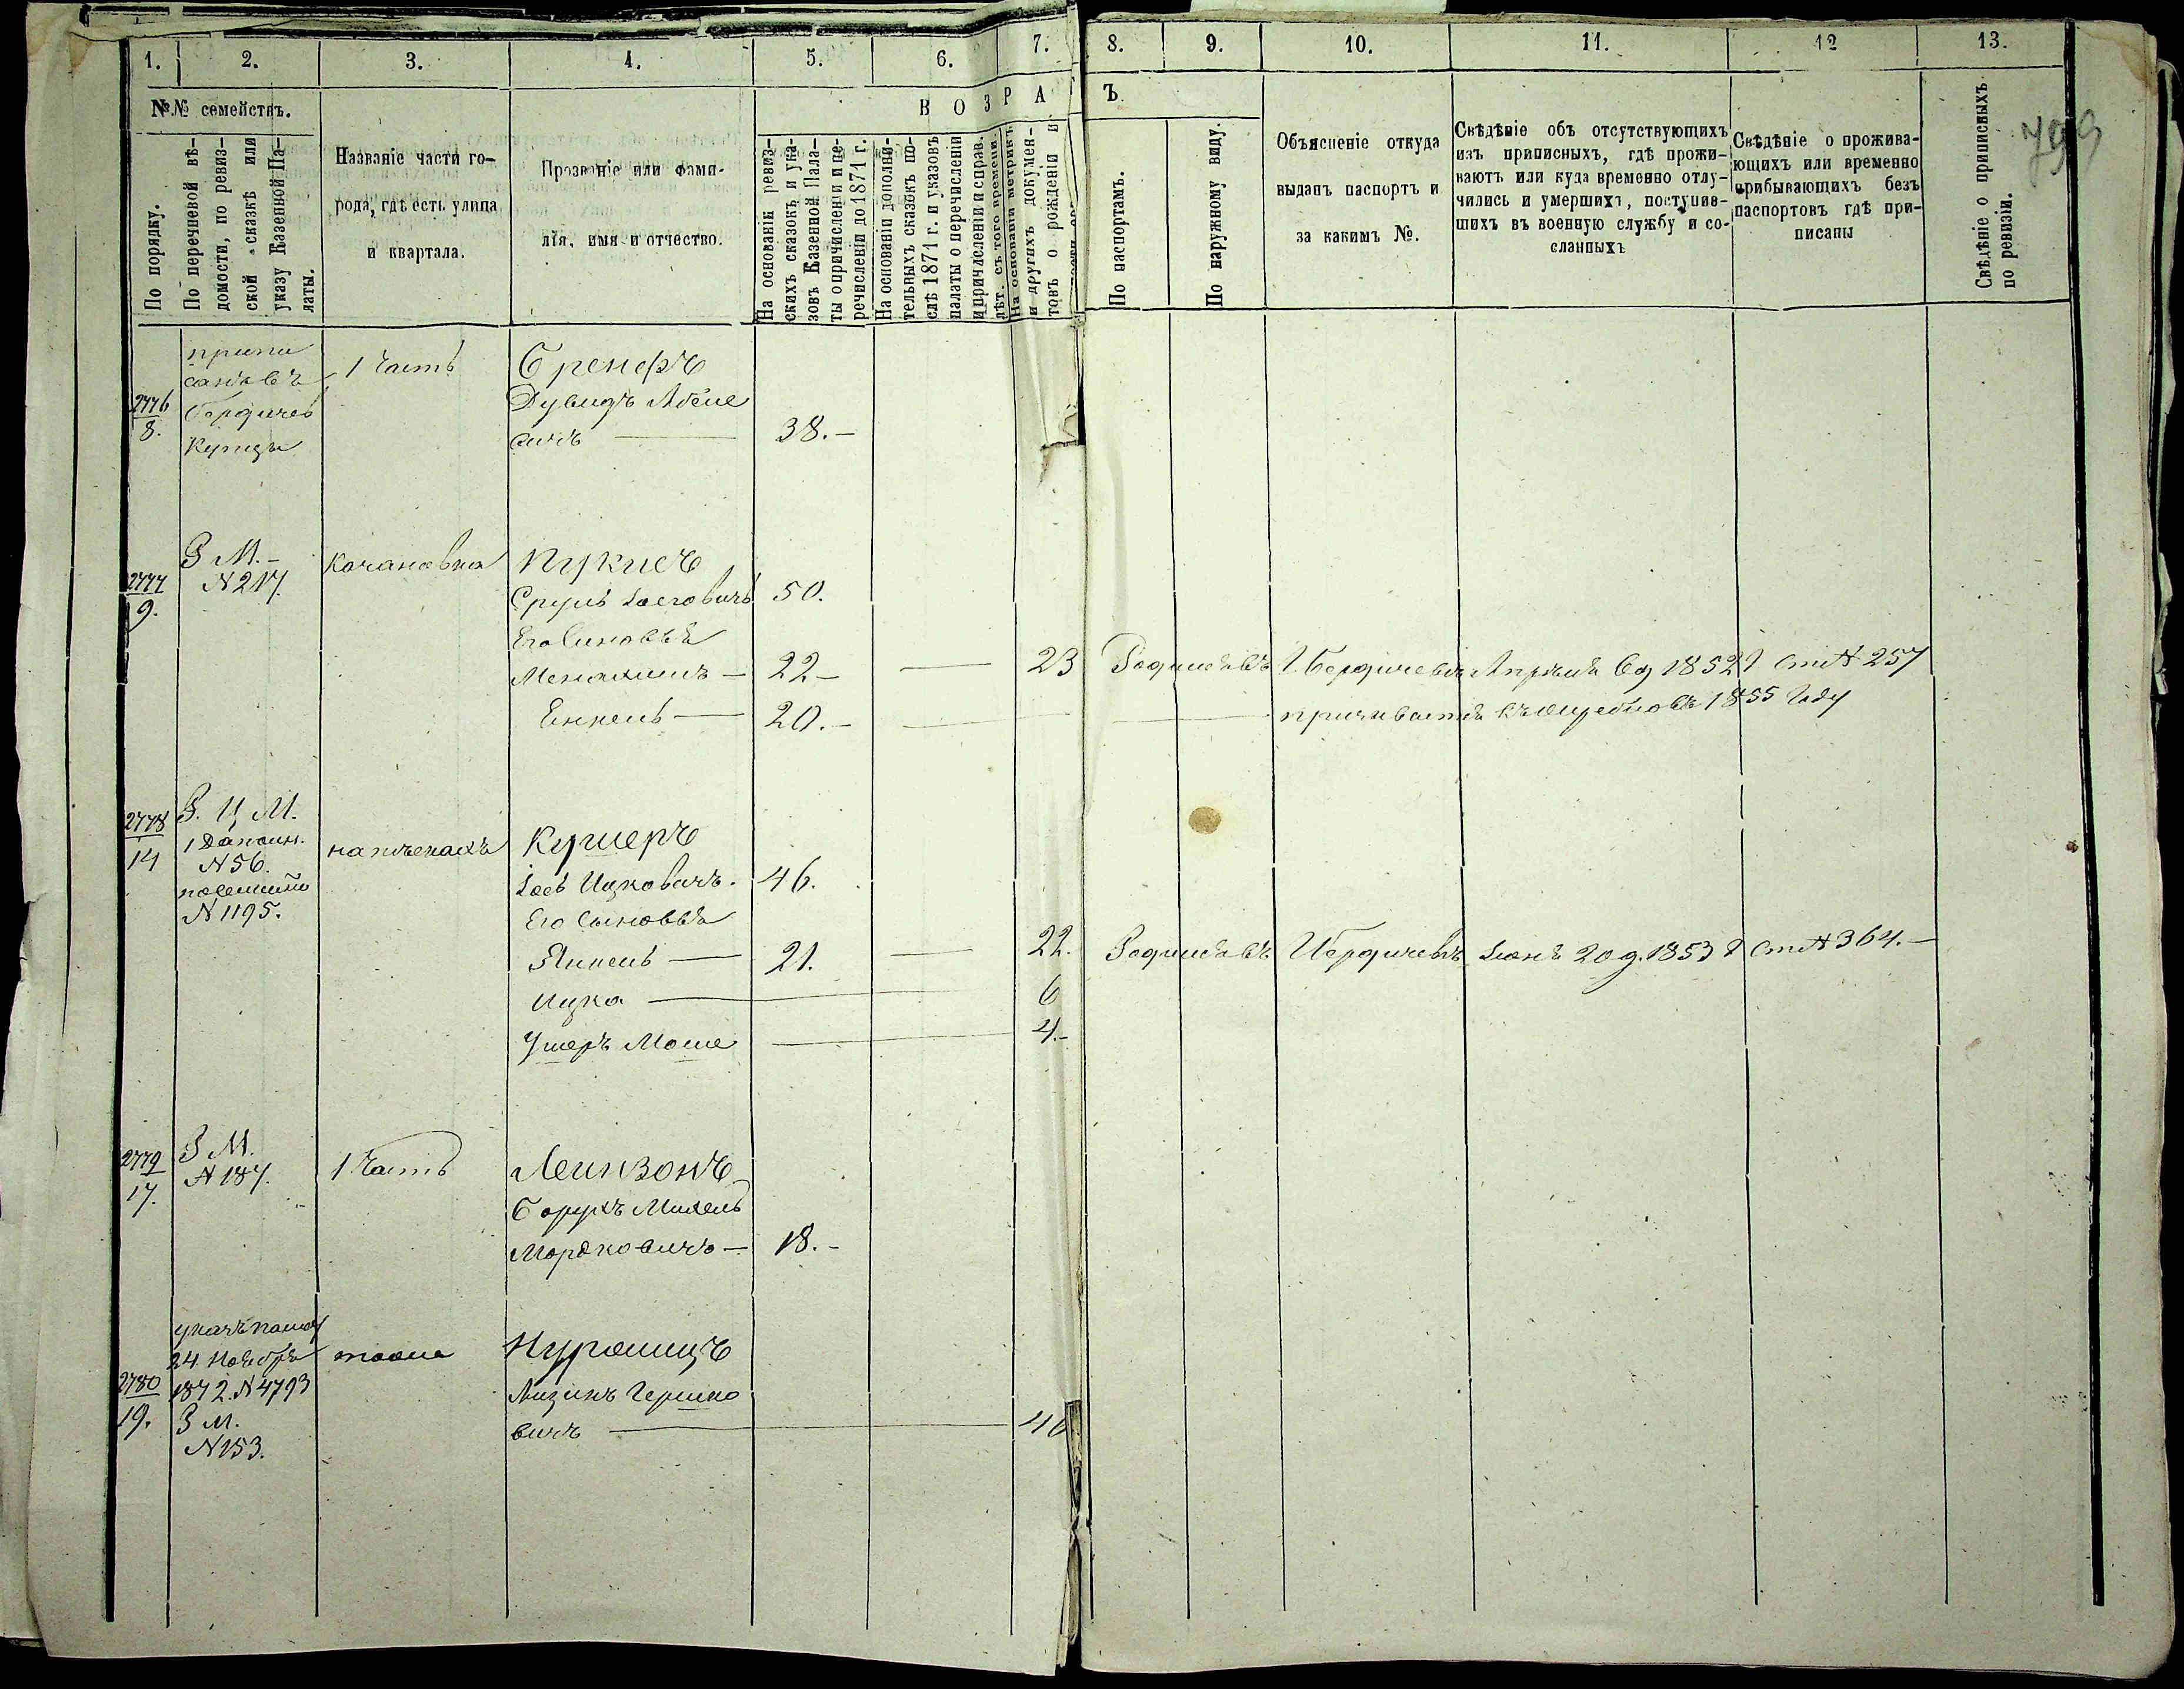 1.
2.
3.
4.
5.
6.
7.
8.
9.
10.
11.
12
13.
№№ семействъ.
По порядку.
По перечневой вѣ-
домости, по ревиз-
ской сказкѣ или
указу Казенной Па-
латы.
Названіе части го-
рода, гдѣ есть улица
и квартала.
Прозваніе или фами-
лія, имя и отчество.
ВОЗРА
Ъ
На основаніи ревиз-
скихъ сказокъ и ука-
зовъ Казенной Пала-
ты о причисленіи и пе-
речисленіи до 1871 г.
На основаніи дополни-
тельныхъ сказокъ по-
слѣ 1871 г. и указовъ
палаты о перечисленіи
и причисленіи и справ.
лѣт. съ того времени.
На основаніи метрикъ
и другихъ докумен-
товъ о рожденіи и
По паспортамъ.
По наружному виду.
Объясненіе откуда
выданъ паспортъ и
за какимъ №.
Свѣдѣніе объ отсутствующихъ
изъ приписныхъ, гдѣ прожи-
ваютъ или куда временно отлу-
чились и умершихъ, поступив-
шихъ въ военную службу и со-
сланныхъ
Свѣдѣніе о прожива-
ющихъ или временно
прибывающихъ безъ
паспортовъ гдѣ при-
писаны
Свѣдѣніе о приписныхъ
по ревизіи.
799
2776
8.
припи
санъ въ
Бердичев
Купцы
1 Часть
Бренеръ
Дувидъ
38.-
2777
9.
З М.-
N 217.
Качановка
Пукисъ
Сруль Іосговичъ 50.
Его Сыновья
Менахимъ - 22 - — 23 Родился въ Г. Бердичевѣ Апрѣля 6 д 1852 г ст N 257
Енкель — 20.- — — 1855 Году
2778
14
З. Ц М.
1 Дополн.
N 56.
N 1195.
на пескахъ
Кушеръ
Іось Ицковичъ. 46.
Его Сыновья
Янкель — 21. — 22. Родился въ Г Бердичевѣ Іюня 20 д. 1853 г ст N 364.-
Ицко — 6
Ушеръ Моше — 4.-
2779
17.
З М.
N 187.
1 Часть
Лейнзонъ
Борухъ Михель
Мордковичъ — 18.-
2780
19.
указъ палат
24 Ноября
1872. N 4793
З М.
N 153.
тоже
Нурошицъ
Айзикъ Гершко
вичъ — 46